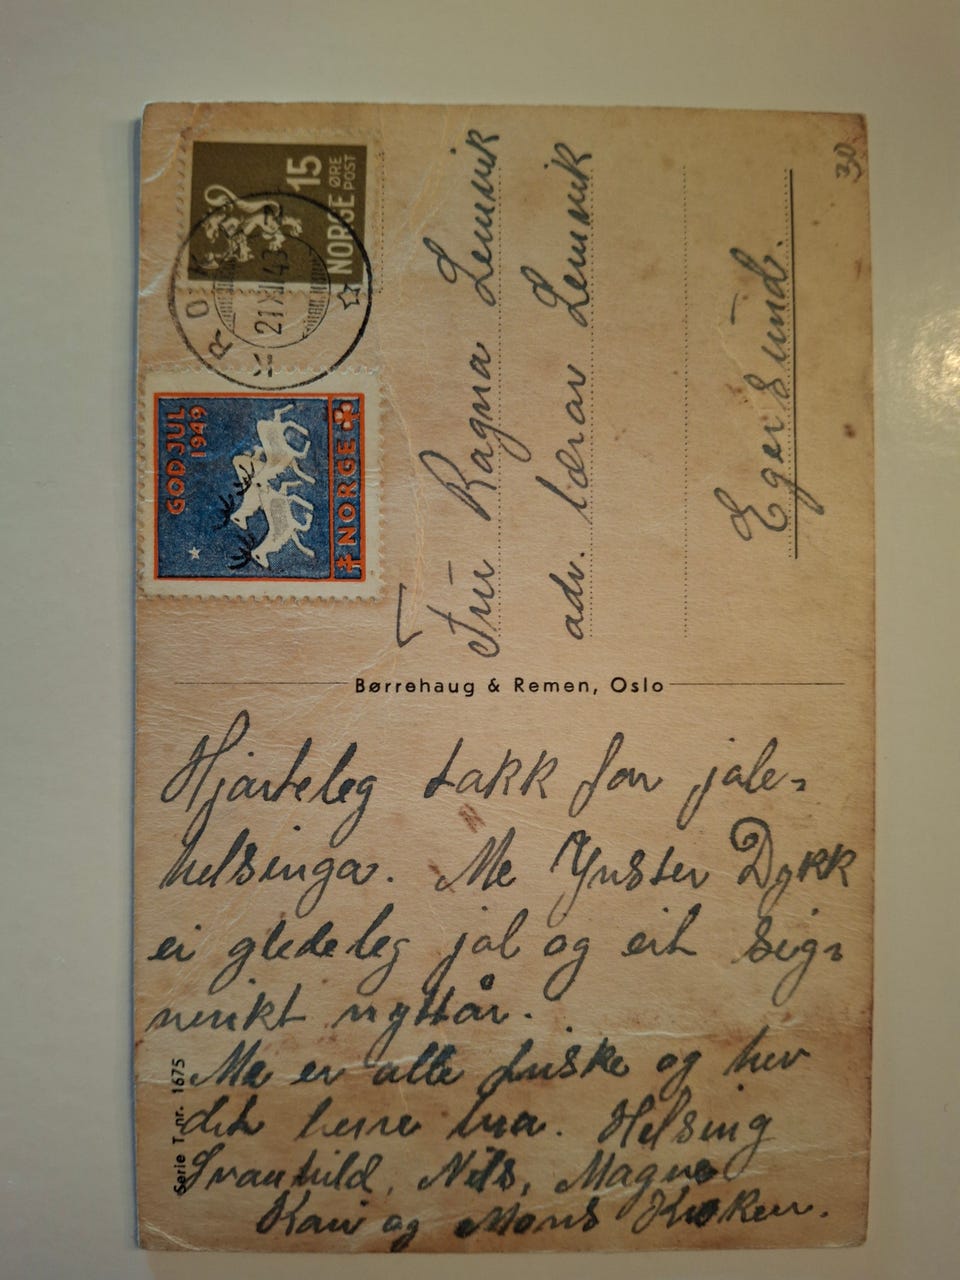 NORGE 15 ØRE POST
KROKEN
21 XII 43
GOD JUL
1949
NORGE
Frú Ragna Lemvik
adr. lærar Lemvik
Egersund.
30.
Børrehaug & Remen, Oslo
Hjarteleg takk for jole-
helsinga. Me Ynster Dykk
ei gledeleg jol og eit sig-
nerikt nyttår.
Me er alle friske og hev
det berre bra. Helsing
Svanhild, Nils, Magne
Kari og Mons Kroken.
Serie T nr. 1675